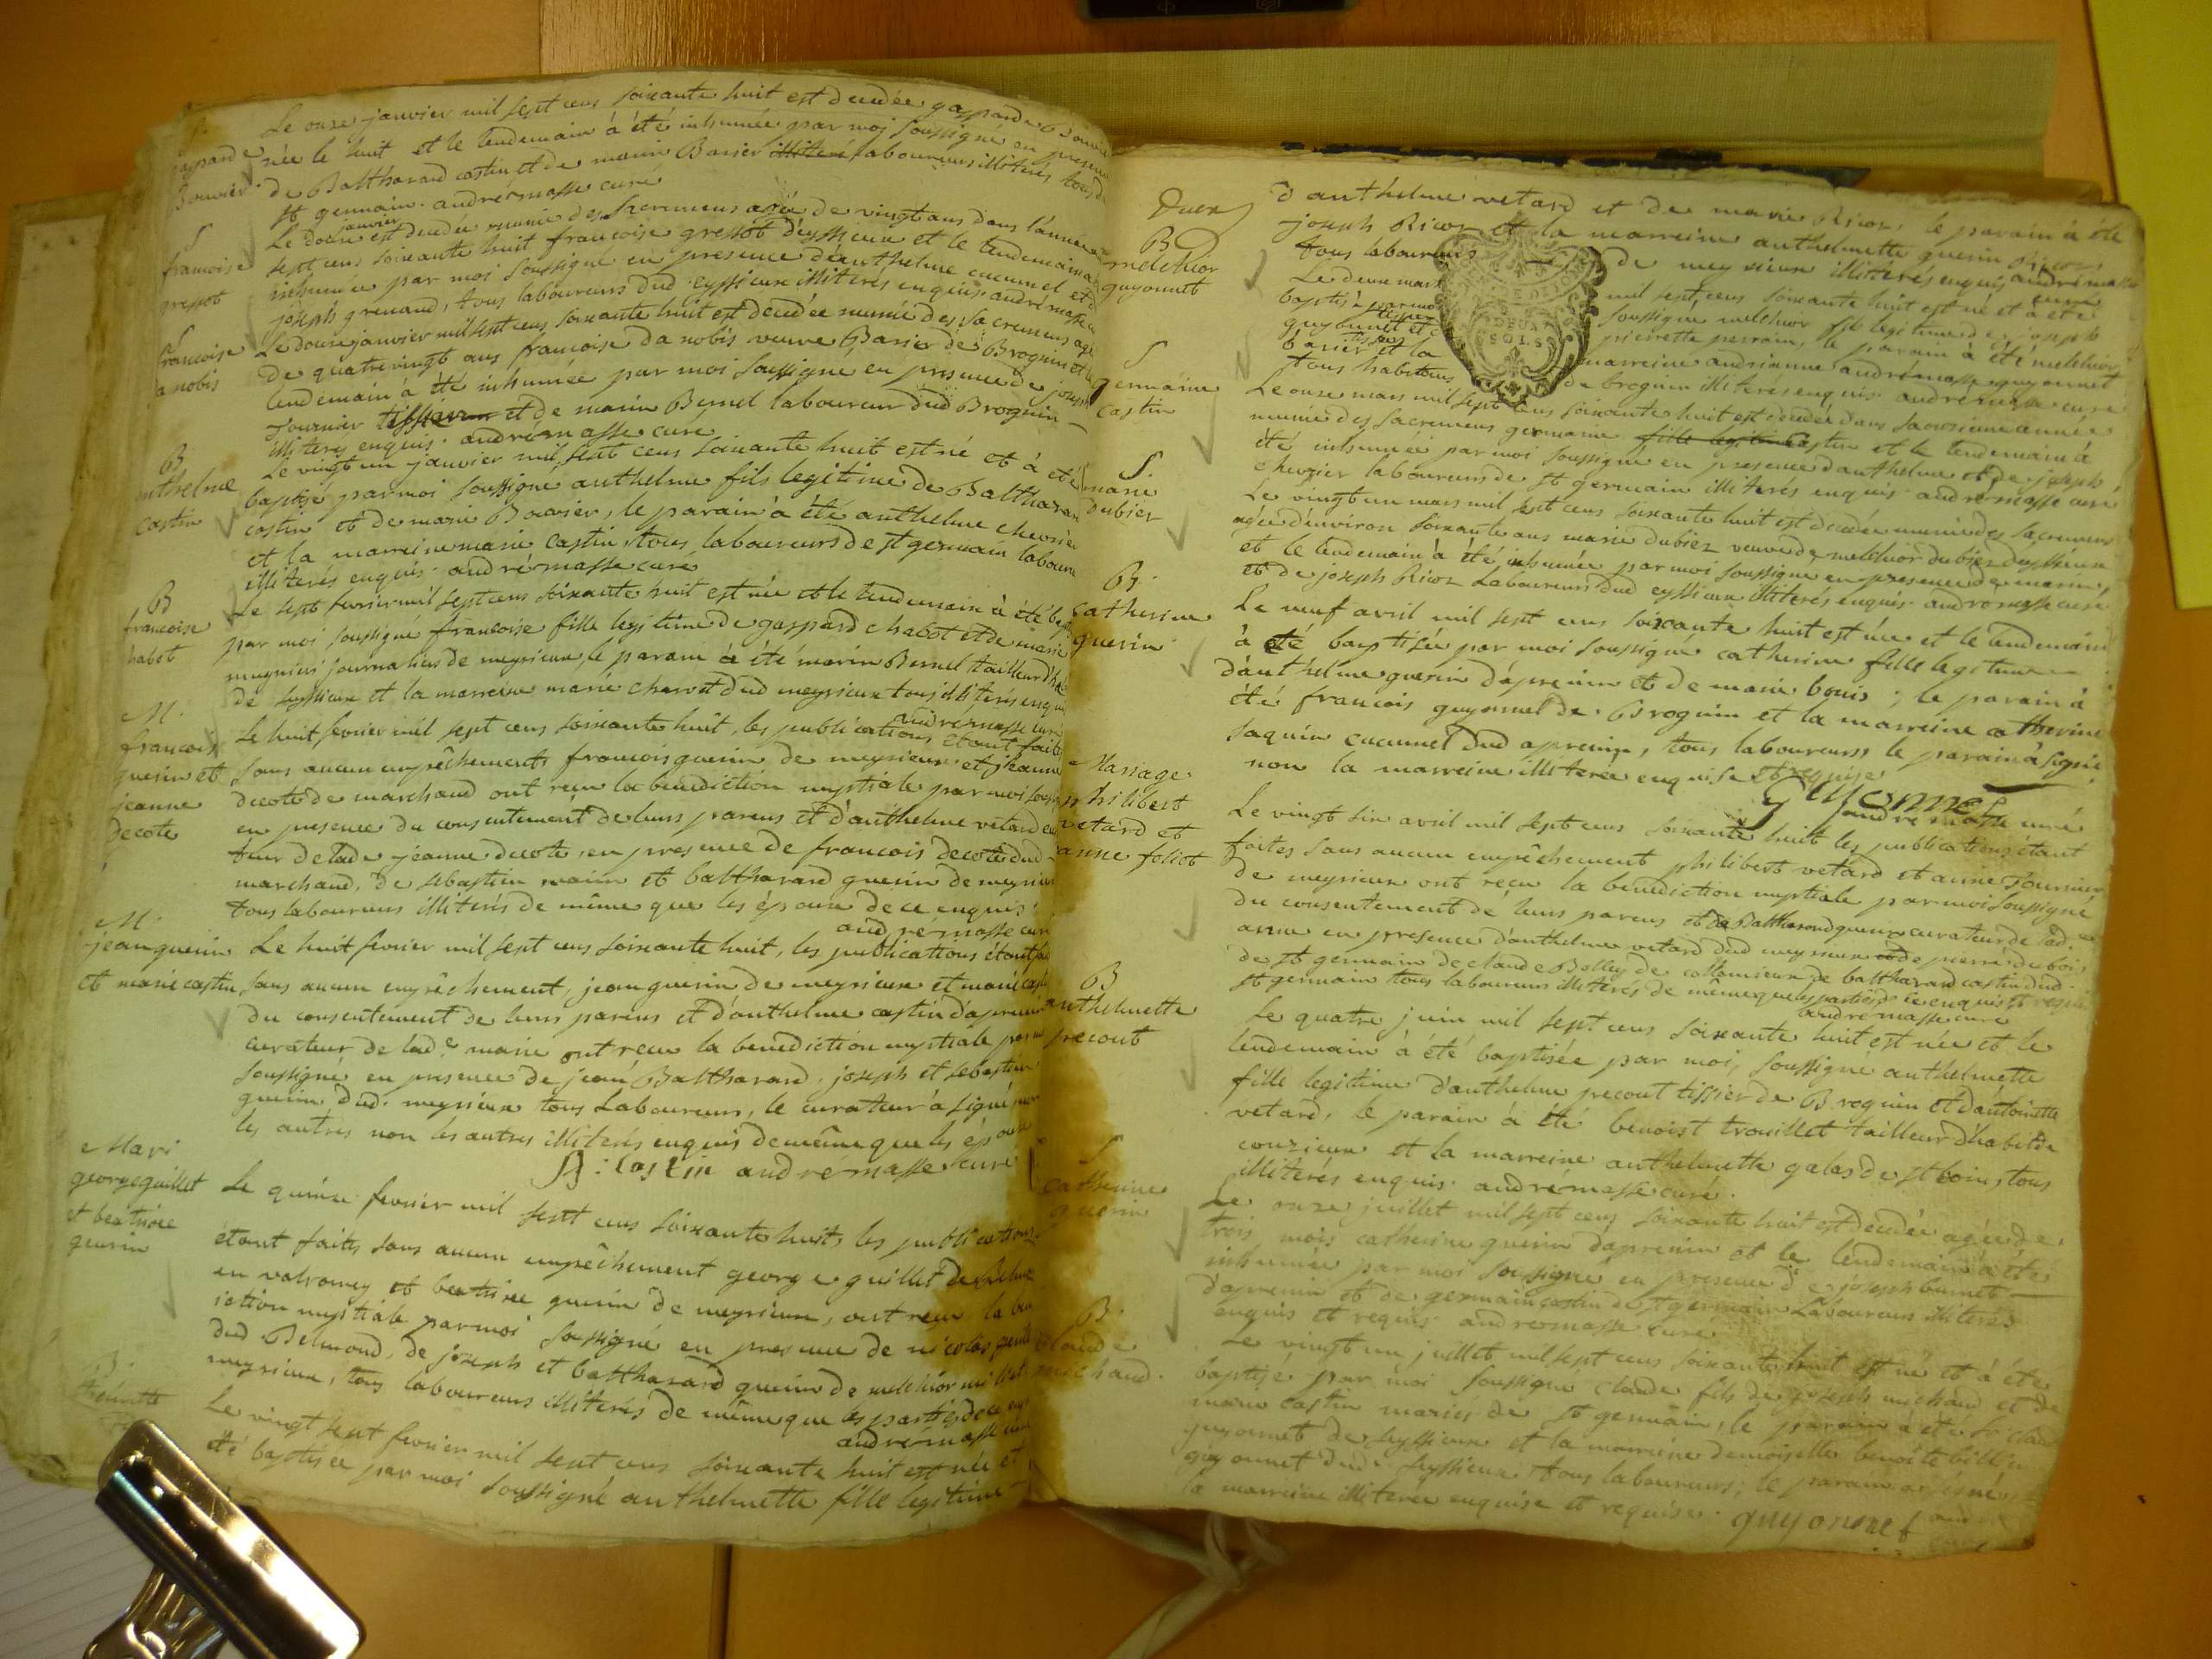 Le onze janvier mil sept cens soixante huit est decedée gasparde Bouvier
née le huit et le lendemain à été inhumée par moi soussigné en presence
de Balthazard castin et de marin Barier laboureurs illiterés tous de
st germain. andrémasse curé
gasparde
Bouvier
S
francoise
gressot
Le douze janvier est decedée munie des sacremens agée de vingt ans dans l'année mil
sept cens soixante huit francoise gressot d'eyssieux et le lendemain a été
inhumée par moi soussigné en presence d'anthelme cucunel et de
joseph grenand, tous laboureurs dud eyssieux illiterés enquis. andrémasse curé
S
francoise
danobis
Le douze janvier mil sept cens soixante huit est decedée munie des sacremens agée
de quatre vingt ans francoise danobis veuve Barier de Brognin et le
lendemain à été inhumée par moi soussigné en presence de joseph
fournier tissier et de marin Bernel laboureur dud Brognin
illiterés enquis. andrémasse curé
B
anthelme
castin
Le vingt un janvier mil sept cens soixante huit est né et à été
baptisé par moi soussigné anthelme fils legitime de Balthazard
castin et de marie Bouvier, le parain à été anthelme chevrier
et la marreine marie castin, tous laboureurs de st germain laboureurs
illiterés enquis. andrémasse curé
B
francoise
habot
Le sept fevrier mil sept cens soixante huit est née et le lendemain à été baptisée
par moi soussigné francoise fille legitime de gaspard chabot et de marie
meugnier journaliers de meyrieux, le parain à été marin Bernel tailleur d'habit
de seyssieux et la marreine marie charvet dud meyrieux tous illiterés enquis
andrémasse curé
M.
francois
guerin et
jeanne
decote
Le huit fevrier mil sept cens soixante huit, les publications étant faites
sans aucun empêchement francois guerin de meyrieux et jeanne
decote de marchand ont reçu la benediction nuptiale par moi soussigné
en presence du consentement de leurs parens et d'anthelme vetard cura
teur de lade jeanne decote, en presence de francois decote dud
marchand, de sebastien marin et balthazard guerin de meyrieux
tous laboureurs illiterés de même que les époux de ce enquis.
andrémasse curé
M.
jean guerin
et marie castin
Le huit fevrier mil sept cens soixante huit, les publications étant faites
sans aucun empêchement, jean guerin de meyrieux et marie castin
du consentement de leurs parens et d'anthelme castin d'apremin
curateur de lade marie ont reçu la benediction nuptiale par moi
soussigné en presence de jean Balthazard, joseph et sebastien
guerin dud. meyrieux tous laboureurs, le curateur à signé
les autres non les autres illiterés enquis de même que les époux
A: castin andrémasse curé
Mari
george guillet
et beatrice
guerin
Le quinze fevrier mil sept cens soixante huit, les publications
étant faites sans aucun empêchement george guillet de Belmond
en valromey et beatrice guerin de meyrieux, ont reçu la bene
diction nuptiale par moi soussigné en presence de nicolas
dud. Belmond, de joseph et balthazard guerin de melchior
meyrieux, tous laboureurs illiterés de même que les parties de ce enquis
andrémasse curé
B.
Le vingt sept fevrier mil sept cens soixante huit est née et
été baptisée par moi soussigné anthelmette fille legitime
d'anthelme vetard et de marie Ricoz, le parain à été
joseph Ricoz et la marreine anthelmette guerin
tous laboureurs de meyrieux illiterés enquis andrémasse
curé
B
melchior
guyonnet
Le deux mars mil sept cens soixante huit est né et a été
baptisé par moi soussigné melchior fils legitime de joseph
guyonnet et pierrette perrain, le parain à été melchior
barier et la marreine andrianne
tous habitans de brognin illiterés enquis andrémasse curé
S
germaine
castin
Le onze mars mil sept cens soixante huit est decedée dans sa onzieme année
munie des sacremens germaine castin et le lendemain à
été inhumée par moi soussigné en presence d'anthelme et de joseph
chevrier laboureurs de st germain illiterés enquis andrémasse curé
S.
marie
dubiez
Le vingt un mars mil sept cens soixante huit est decedée munie des sacremens
agée d'environ soixante ans marie dubiez veuve de melchior dubiez d'eyssieux
et le lendemain à été inhumée par moi soussigné en presence de marin
et de joseph Ricoz laboureurs dud eyssieux illiterés enquis. andrémasse curé
B.
catherine
guerin
Le neuf avril mil sept cens soixante huit est née et le lendemain
à été baptisée par moi soussigné catherine fille legitime
d'anthelme guerin d'apremin et de marie bouis; le parain à
été francois guyonnet de Brognin et la marreine catherine
jaquin cucunnel dud apremin, tous laboureurs le parain à signé
non la marreine illiterée enquise et requise
Guyonnet
andré masse curé
Mariage
philibert
vetard et
anne foliot
Le vingt six avril mil sept cens soixante huit les publications étant
faites sans aucun empêchement philibert vetard et anne fournier
de meyrieux ont reçu la benediction nuptiale par moi soussigné
du consentement de leurs parens et de Balthazard guerin curateur de lade
anne en presence d'anthelme vetard dud meyrieux de pierre dubois
de st germain de claude Bolley de collomieux de balthazard castin dud.
st germain tous laboureurs illiterés de même que les parties de ce enquis et requis
andrémasse curé
B
anthelmette
precout
Le quatre juin mil sept cens soixante huit est née et le
lendemain à été baptisée par moi, soussigné anthelmette
fille legitime d'anthelme precout tissier de Brognin et d'antoinette
vetard, le parain à été benoist trouillet tailleur d'habit de
couzieux et la marreine anthelmette galas de st bois, tous
illiterés enquis. andrémasse curé.
S
catherine
guerin
Le onze juillet mil sept cens soixante huit est decedée agée de
trois mois catherine guerin d'apremin et le lendemain à été
inhumée par moi soussigné en presence de joseph burnet
d'apremin et de germain castin de st germain laboureurs illiterés
enquis et requis andrémasse curé
B.
claude
michaud.
Le vingt un juillet mil sept cens soixante huit est né et à été
baptisé par moi soussigné claude fils de joseph michaud et de
marie castin mariés de st germain, le parain à été sr claude
guyonnet de seyssieux et la marreine demoiselle benoite billieu
guyonnet dud. seyssieux tous laboureurs; le parain a signé
la marreine illiterée enquise et requise. guyonnet